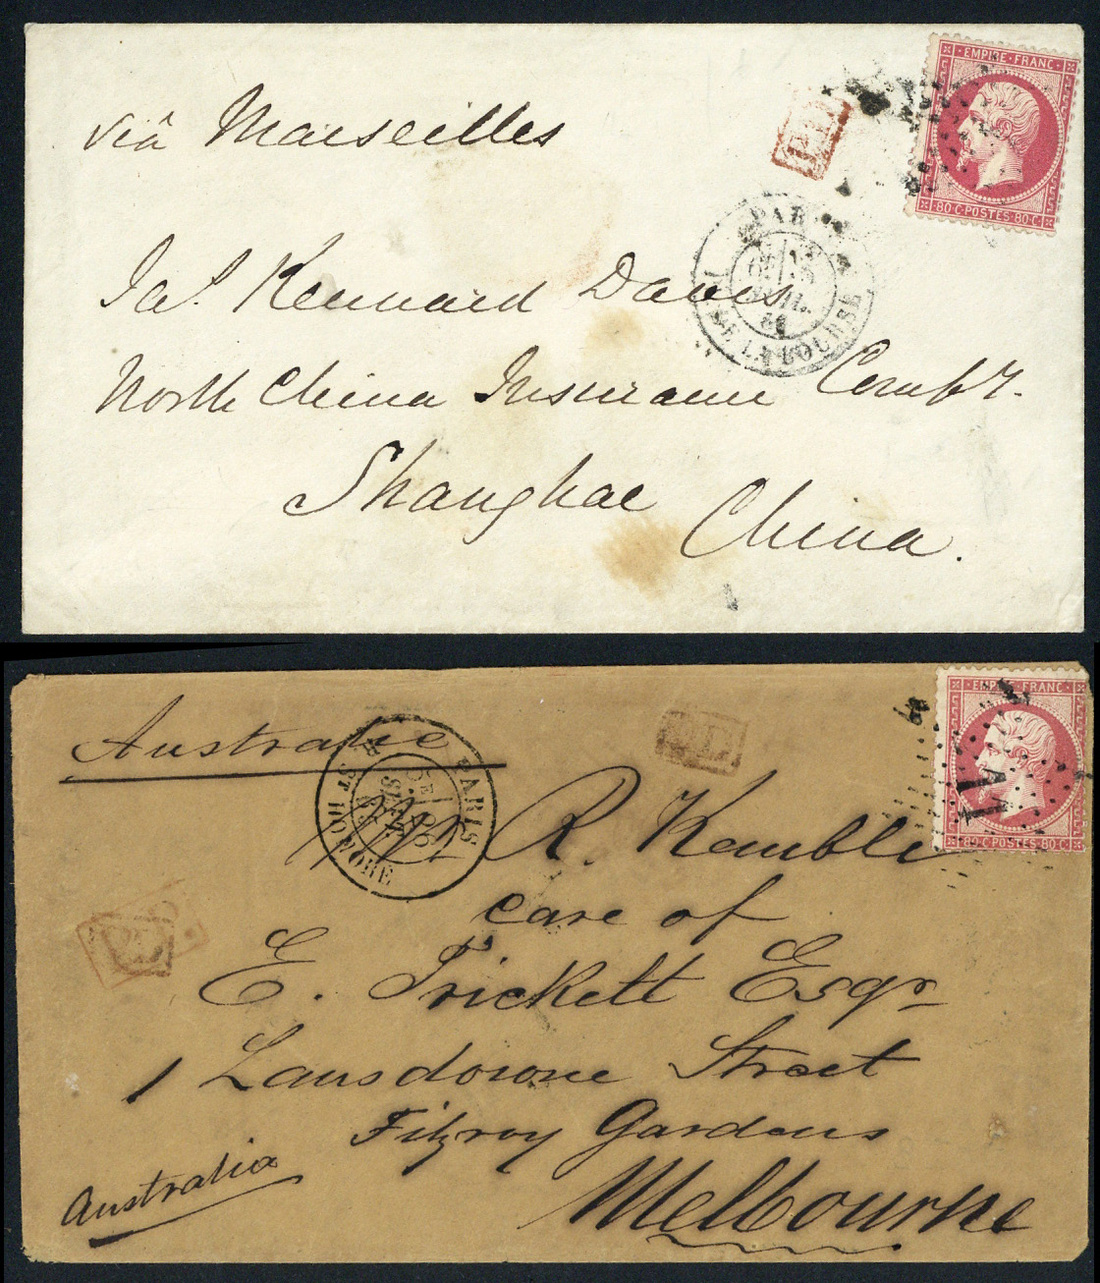 viâ Marseilles
EMPIRE FRANC
80 C POSTES 80 C
P.D.
PARIS
PL. DE LA BOURSE
Jas. Kennard Davis
North China Insurance Compy.
Shanghae
China.
Australie
EMPIRE FRANC
80 C POSTES 80 C
P.D.
PARIS
R. ST HONORE
5E
26
SEPT
R. Kemble
care of
P.D.
E. Trickett Esqr
1 Lansdowne Street
Fitzroy Gardens
Australia
Melbourne